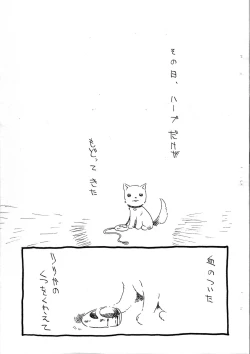 その日、ハーブだけが
もどってきた
血のついた
リサの
くつをくわえて